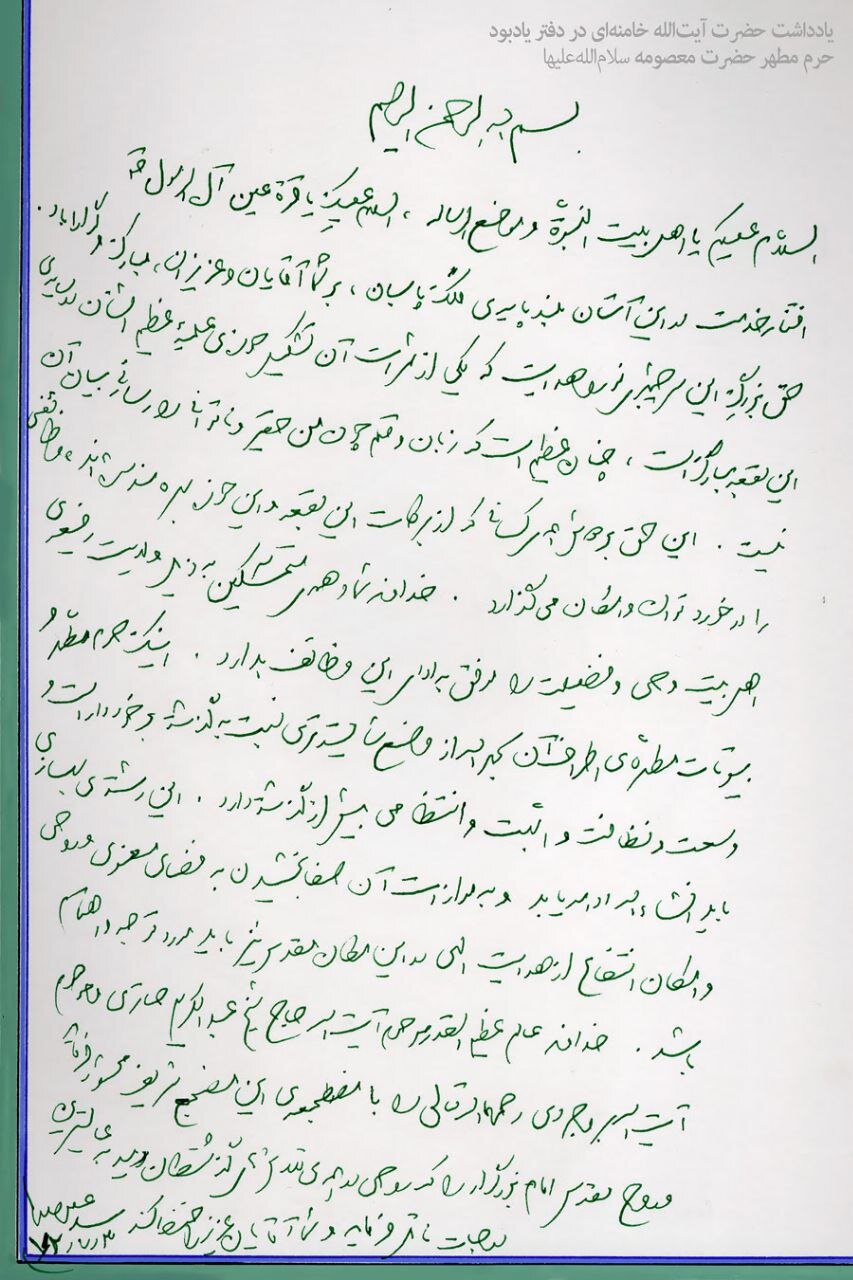 یادداشت حضرت آیت‌الله خامنه‌ای در دفتر یادبود
حرم مطهر حضرت معصومه سلام‌الله‌علیها
بسم الله الرحمن الرحیم
السلام علیکم یا اهل بیت النبوّة و موضع الرسالة، السلام علیکِ یا قرة عین آل الرسول
افتخار خدمت در این آستان بلند پایه‌ی ملَک پاسبان، بر شما آقایان و عزیزان، مبارک و گوارا باد.
حق بزرگ این سرچشمه‌ی نور و هدایت که یکی از ثمرات آن تشکیل حوزه‌ی علمیه‌ی عظیم الشأن در سایه‌ی
این بقعه‌ی مبارکه است، چنان عظیم است که زبان و قلم چون من حقیر و ناتوانی را یارای بیان آن
نیست. این حق بر دوش همه‌ی کسانی که از برکات این بقعه و این حوزه بهره‌مند شده‌اند، وظائفی
را در خورد توان و امکان می‌گذارد. خداوند شما و همه‌ی متمسکین به ذیل ولایت
اهل بیت وحی و فضیلت را موفق به ادای این وظائف بدارد. اینک حرم مطهّر و
بیوتات مطهّره‌ی اطراف آن بحمدالله از وضع شایسته‌تری نسبت به گذشته برخوردار است و
وسعت و نظافت و اُبّهت و انتظامی بیش از گذشته دارد. این رشته‌ی بهسازی
باید انشاءالله ادامه یابد و به موازات آن صفا بخشیدن به فضای معنوی و روحی
و امکان انتفاع از هدایت الهی در این مکان مقدس نیز باید مورد توجه و اهتمام
باشد. خداوند عالم عظیم القدر مرحوم آیت‌الله حاج شیخ عبدالکریم حائری و مرحوم
آیت‌الله بروجردی رحمهماالله تعالی را با مضطجعه‌ی این مضجع شریف محشور فرماید
و روح مقدس امام بزرگوار را که روحی در همه‌ی تلاشهای گذشتگان دمید به عالی‌ترین
درجات نائل فرماید و شما آقایان عزیز را حفظ کند
سید علی خامنه‌ای